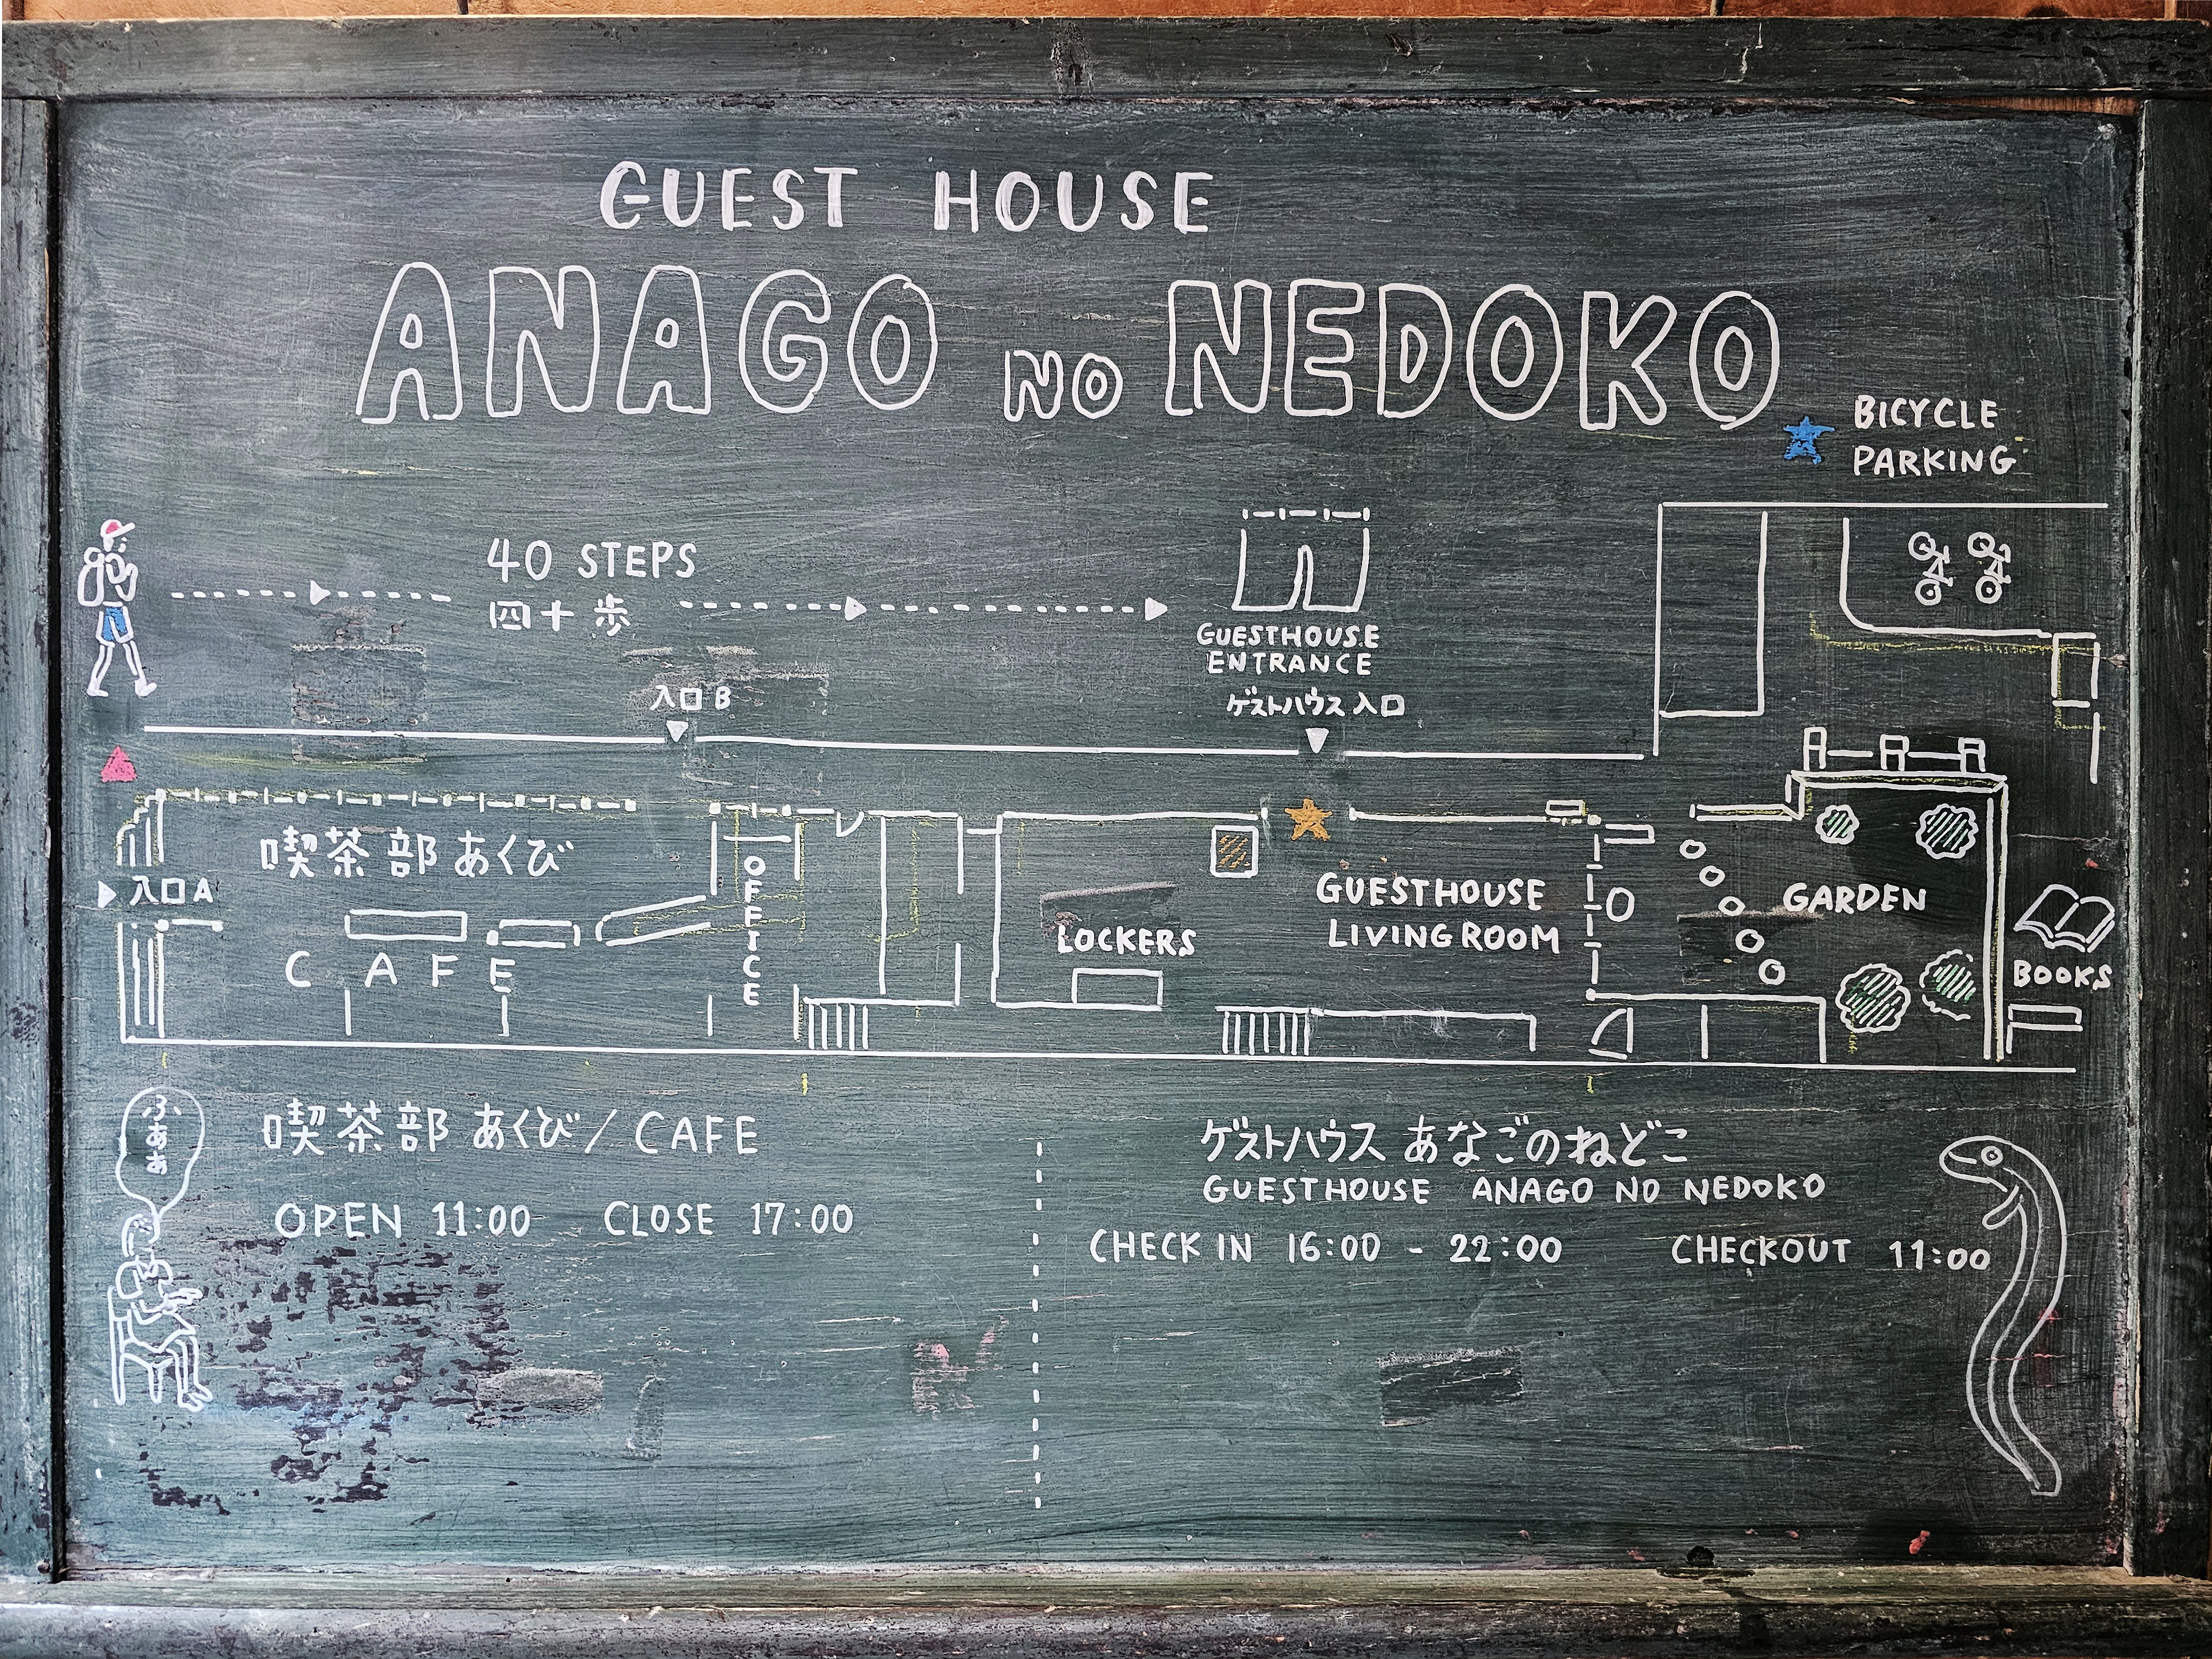 GUEST HOUSE
ANAGO NO NEDOKO
BICYCLE
PARKING
40 STEPS
四十歩
GUESTHOUSE
ENTRANCE
ゲストハウス入口
入口B
喫茶部あくび
入口A
CAFE
OFFICE
LOCKERS
GUESTHOUSE
LIVING ROOM
GARDEN
BOOKS
ふぁぁぁ
喫茶部 あくび/CAFE
OPEN 11:00 CLOSE 17:00
ゲストハウス あなごのねどこ
GUESTHOUSE ANAGO NO NEDOKO
CHECK IN 16:00 - 22:00 CHECKOUT 11:00